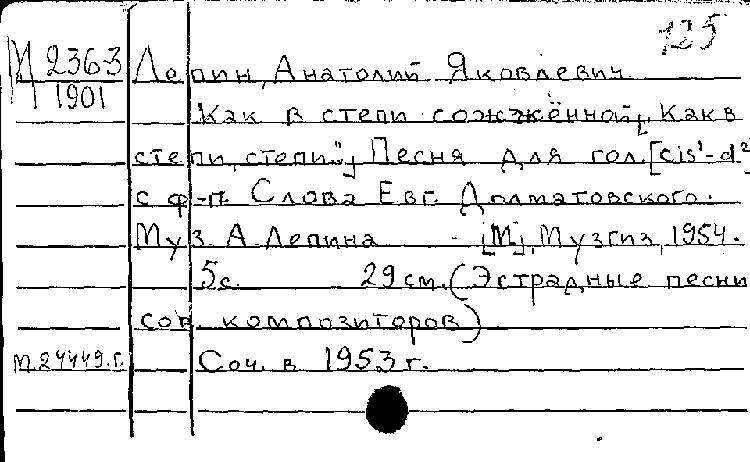 125
М 2363 Лепин, Анатолий Яковлевич
1901
Как в степи сожжённой, [Как в
степи, степи"] Песня для гол. [cis¹-d²]
с ф-п. Слова Евг. Долматовского.
Муз. А Лепина [М], Музгиз, 1954.
5с. 29 см. (Эстрадные песни
сов. композиторов)
М.24449.г. Соч. в 1953 г.